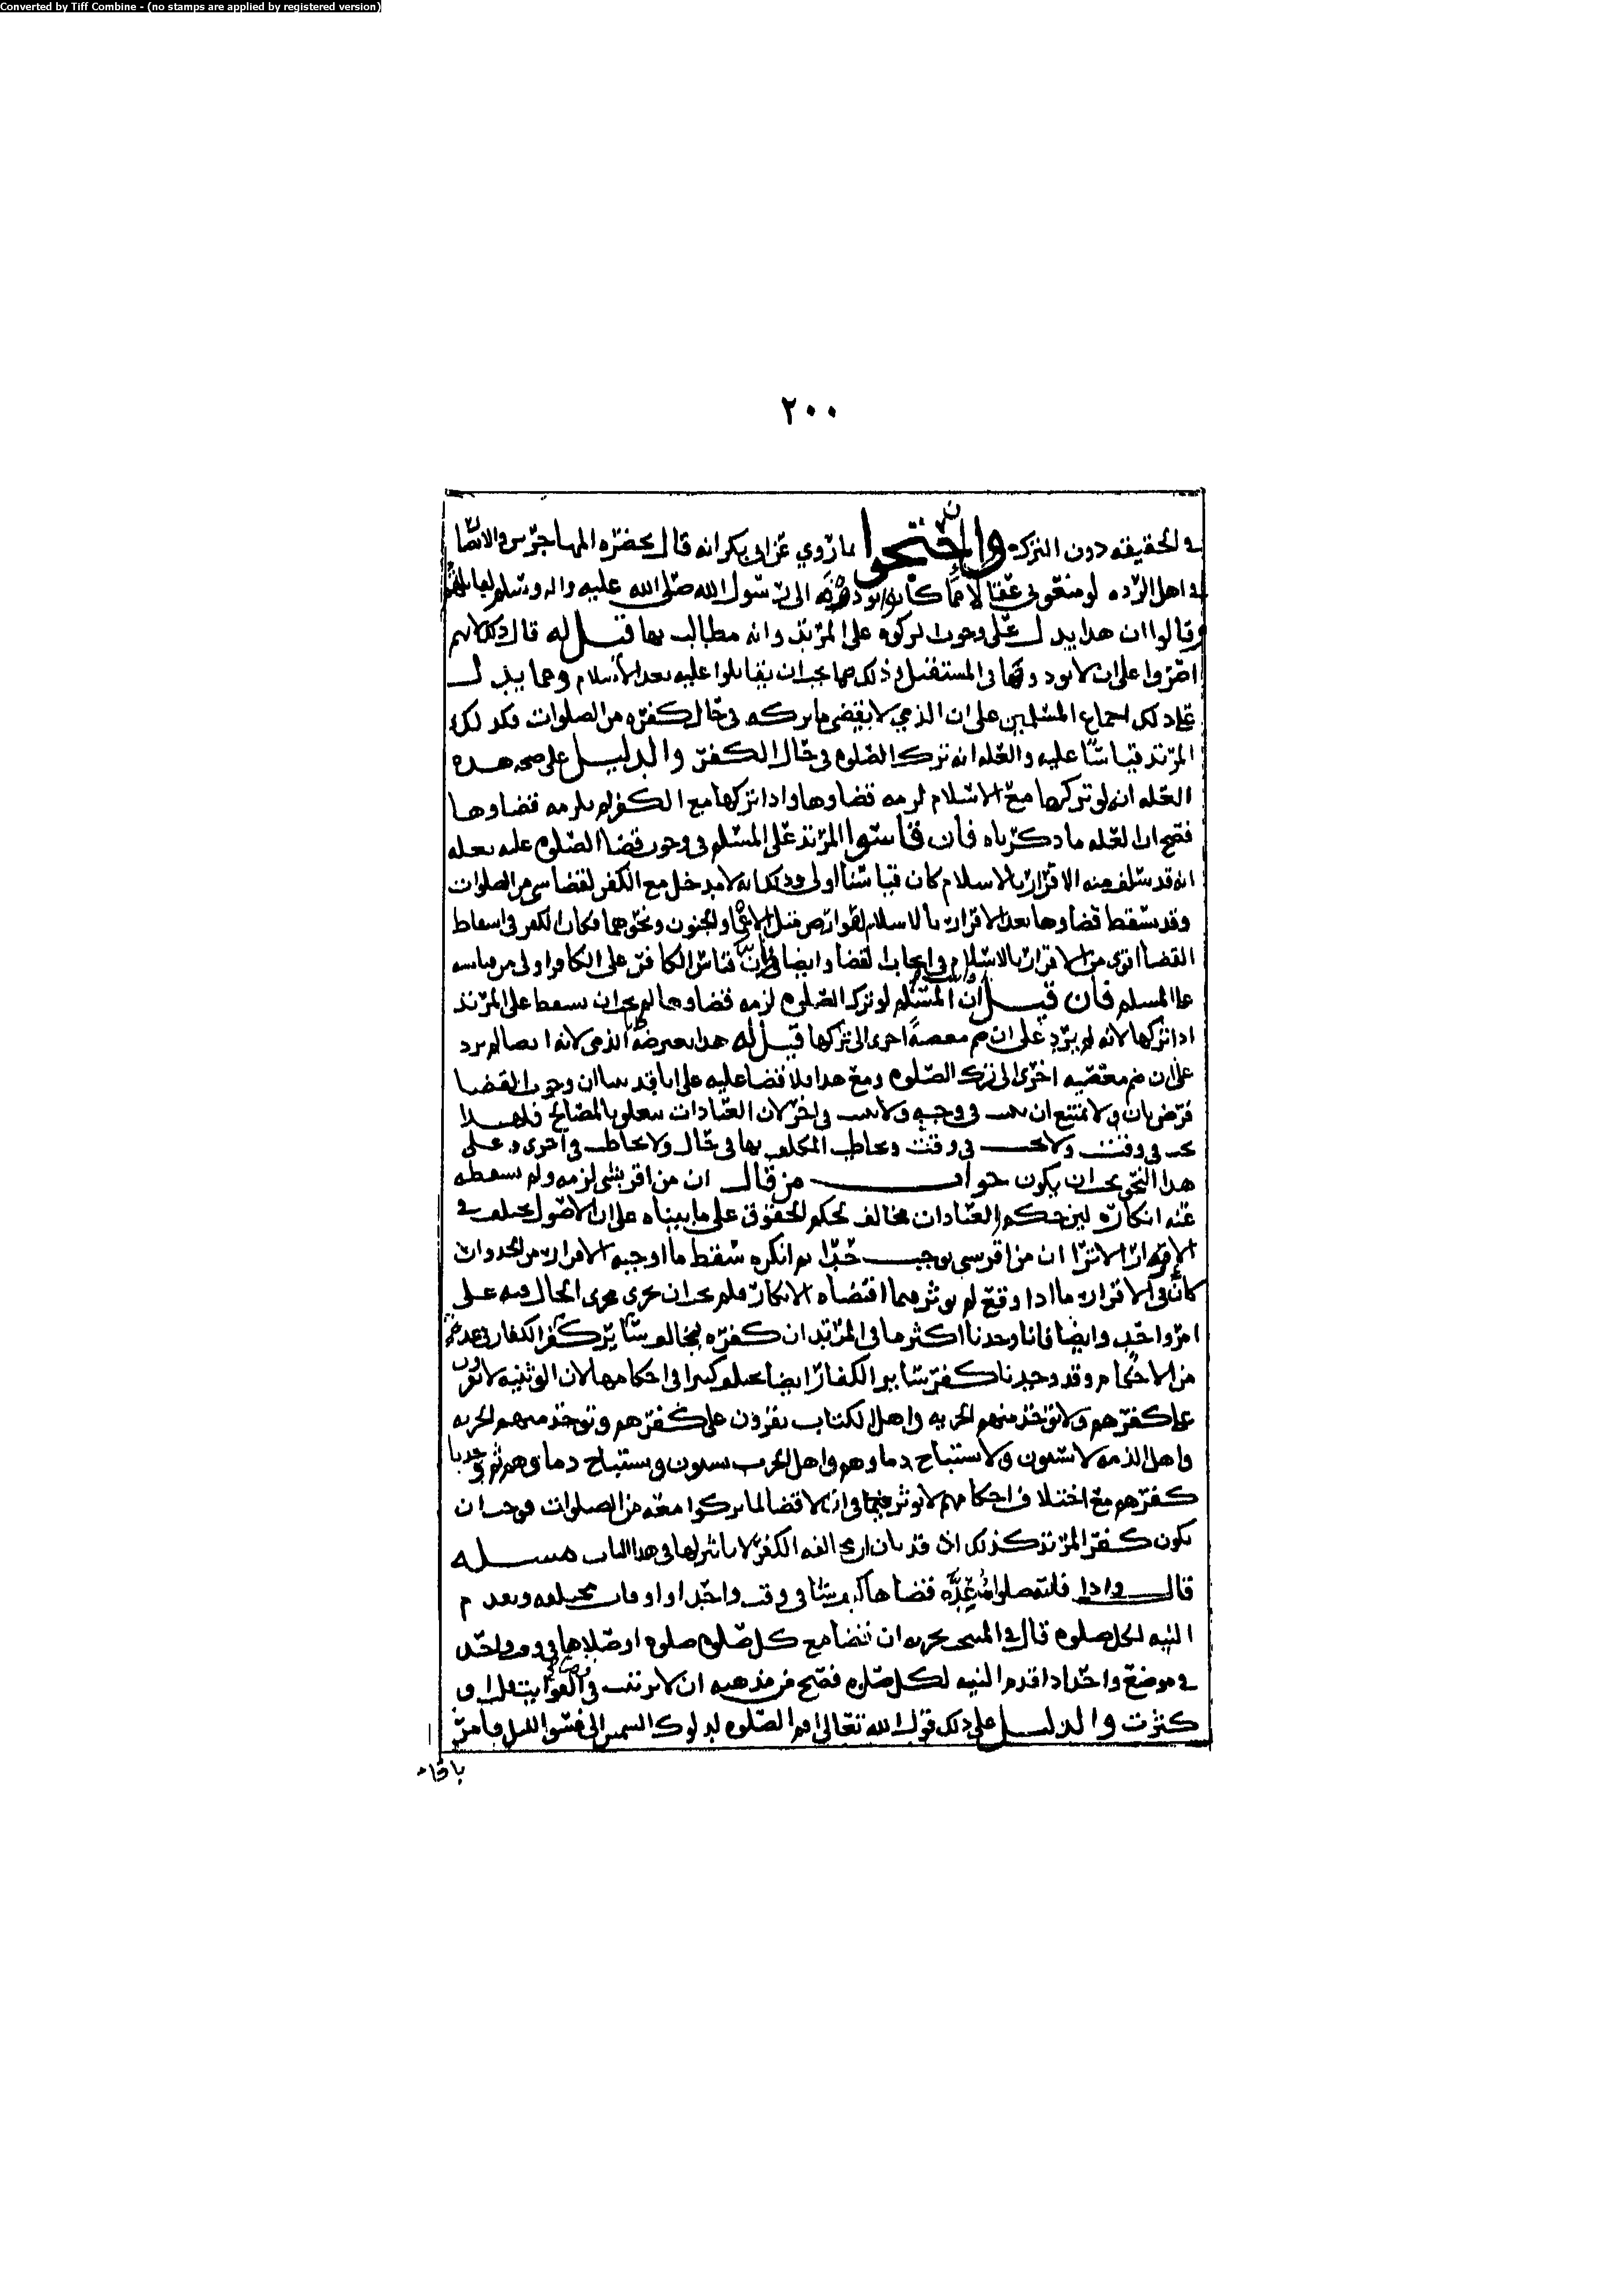 Converted by Tiff Combine - (no stamps are applied by registered version)
٢٠٠
في الحقيقة دون التركه وإن احتجوا بما روي عن ابي بكر انه قال بحضره المهاجرين والانصا
في اهل الرده لو منعوني عقالا مما كانوا يودونه الى رسول الله صلى الله عليه واله وسلم لقاتلتهم
وقالوا ان هذا يدل على وجوب الزكوه على المرتد وانه مطالب بها قيل له قال ذلك لانهم
اصروا على ان لا يودونها في المستقبل وذلك مما يجب ان يقاتلوا عليه بعد الاسلام ومما يدل
على ذلك اجماع المسلمين على ان الذمي لا يقضي ما تركه في حال كفره من الصلوات فكذلك
المرتد قياسا عليه والعله انه ترك الصلوه في حال الكفر والدليل على صحه هذه
العله انه لو تركها مع الاسلام لزمه قضاوها واذا تركها مع الكفر لم يلزمه قضاوها
فصح ان العله ما ذكرناه فان قاسوا المرتد على المسلم في وجوب قضا الصلوه عليه بعله
انه قد سلف منه الاقرار بالاسلام كان قياسنا اولى وذلك انه لا مدخل مع الكفر لقضا شي من الصلوات
وقد سقط قضاوها بعد الاقرار بالاسلام لعوارض مثل الاغما والجنون ونحوهما فكان الكفر في اسقاط
القضا اقوى من الاقرار بالاسلام في ايجاب القضا وايضا فان قياس الكافر على الكافر اولى من قياسه
على المسلم فان قيل ان المسلم لو ترك الصلوه لزمه قضاوها لم يجب ان يسقط على المرتد
اذا تركها لانه لم يزد على ان ضم معصية اخرى الى تركها قيل له هذا يعترضه الذمي لانه ايضا لم يزد
على ان ضم معصيه اخرى الى ترك الصلوه ومع هذا فلا قضا عليه على انا قد بينا ان وجوب القضا
فرض ثان ولا يمتنع ان يثبت في وجه ولا يثبت في اخر لان العبادات تتعلق بالمصالح فلهذا
يجب في وقت ولا يجب في وقت ويخاطب المكلف بها في حال ولا يخاطب في اخرى وعلى
هذا النحو يجب ان يكون جواب من قال ان من اقر بشي لزمه ولم يسقطه
عنه انكاره لان حكم العبادات مخالف لحكم الحقوق على ما بيناه على ان الاصول تختلف في
الاقرار الا ترا ان من اقر بشي يوجب حدا ثم انكره سقط ما اوجبه الاقرار من الحد وان
كان في الاقرار ما اذا وقع لم يوثر فيما اقتضاه الانكار فلم يجب ان يجرى مجرى الحال فيه على
امر واحد وايضا فانا وجدنا اكثر ما في المرتد ان كفره يخالف ساير كفر الكفار في عده
من الاحكام وقد وجدنا كفر ساير الكفار ايضا يختلف كثيرا في احكامها لان الوثنيه لا يقرون
على كفرهم ولا توخذ منهم الجزيه واهل الكتاب يقرون على كفرهم وتوخذ منهم الجزيه
واهل الذمه لا يسبون ولا تستباح دماوهم واهل الحرب يسبون وتستباح دماوهم ثم وجدنا
كفرهم مع اختلاف احكامهم لا يوثر فيما في انه لا قضا لما تركوا معه من الصلوات فوجب ان
يكون كفر المرتد كذلك اذ قد بان ان مخالفه الكفر لا تاثير لها في هذا الباب مسله
قال واذا فاتته صلوات عده قضاها كيف شا في وقت واحد او اوقات مختلفه وبعد م
النيه لكل صلوه قال في المنتخب يجزيه ان يقضا مع كل صلوه صلوه او صلاها في وقت واحد
في موضع واحد اذا قدم النيه لكل صلوه فصح من مذهبه ان لا ترتيب في الفوايت قلت او
كثرت والدليل على ذلك قول الله تعالى اقم الصلوه لدلوك الشمس الى غسق الليل فامر
باقام